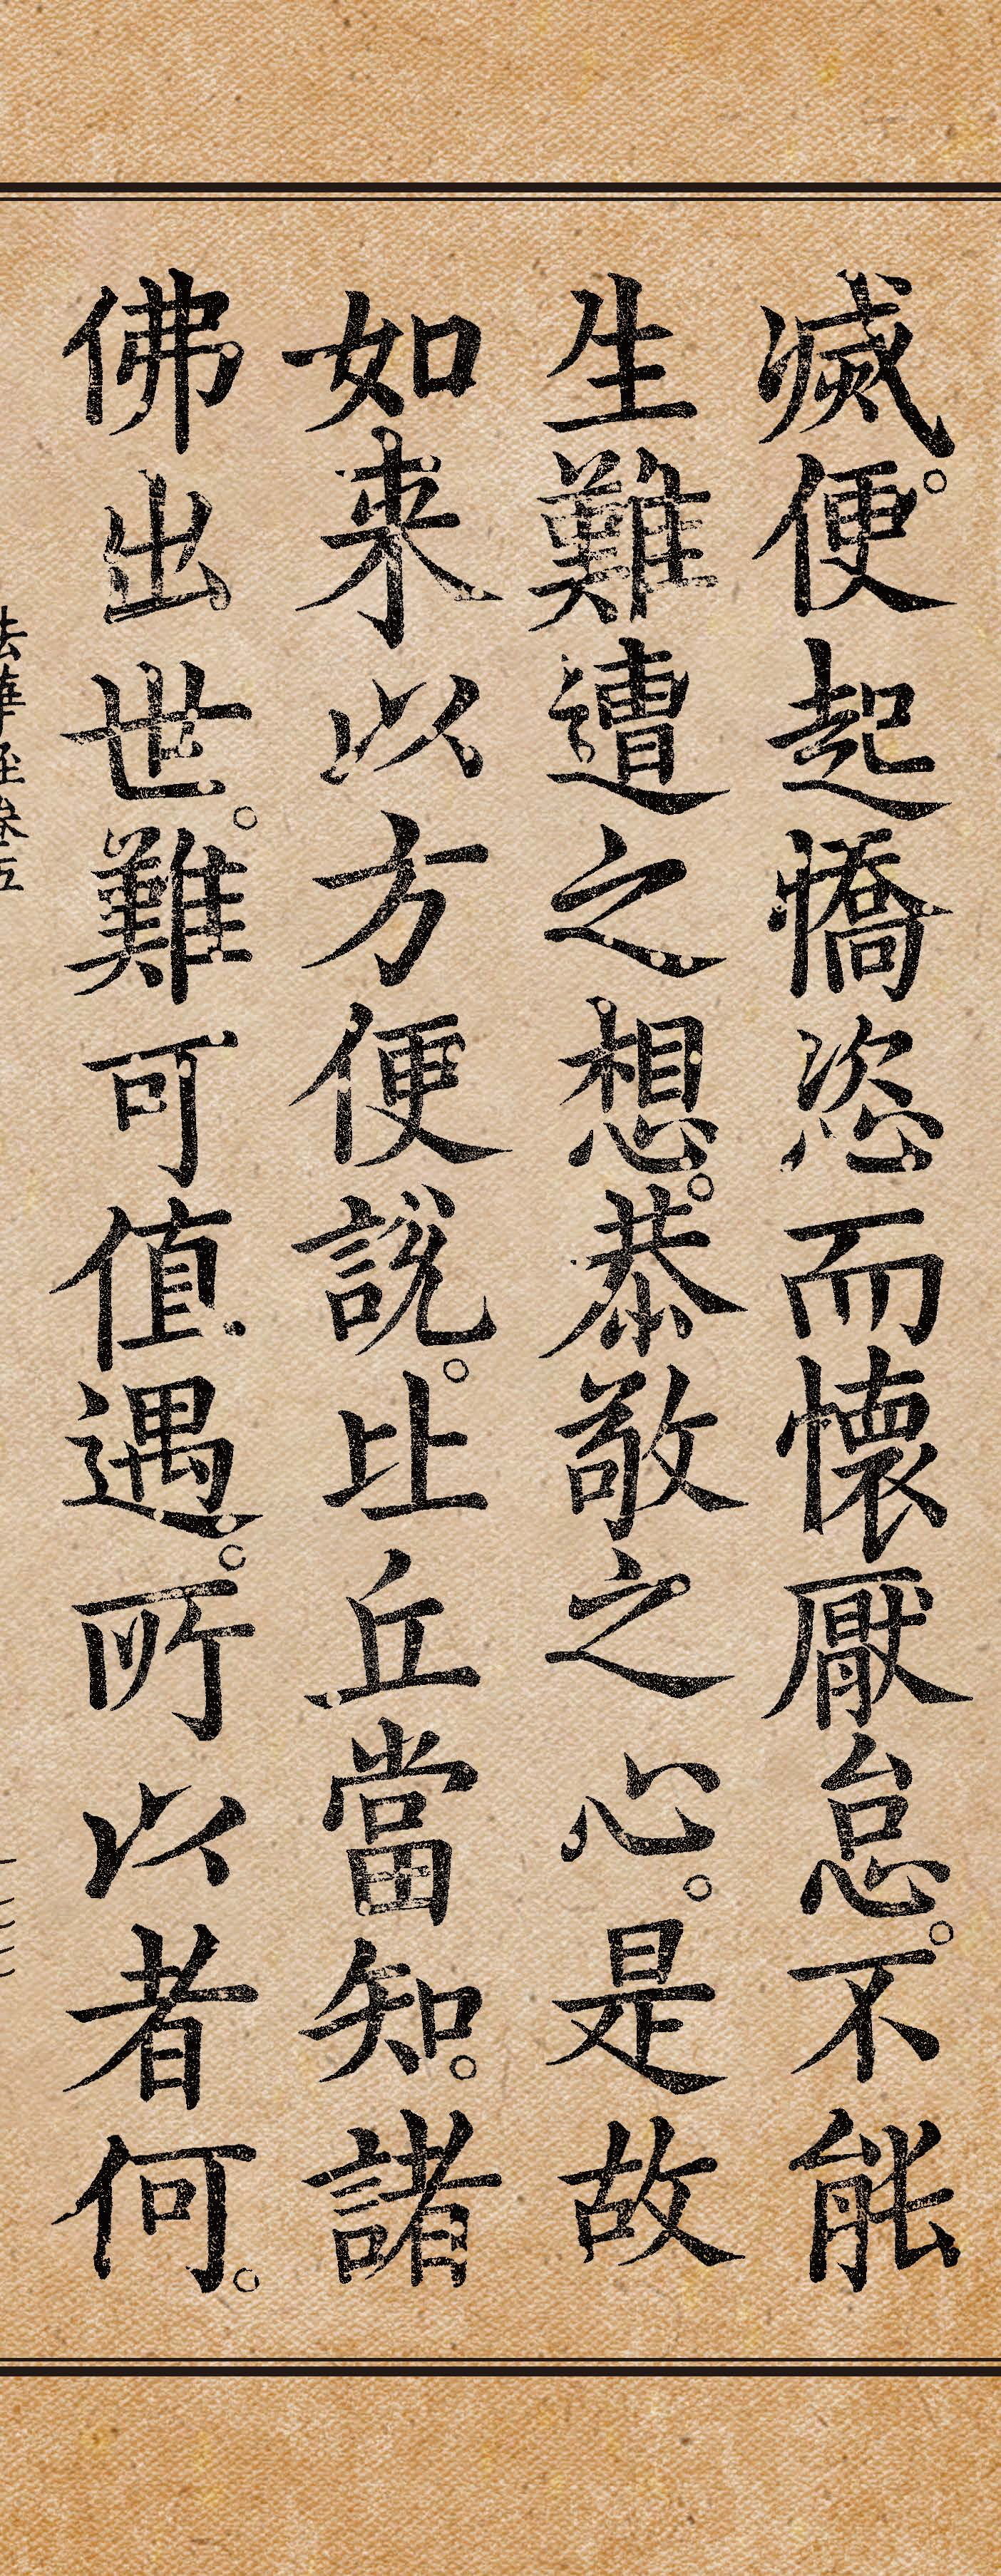 滅。便起憍恣而懷厭怠。不能
生難遭之想。恭敬之心。是故
如来以方便說。比丘當知。諸
佛出世。難可值遇。所以者何。
法華經卷五